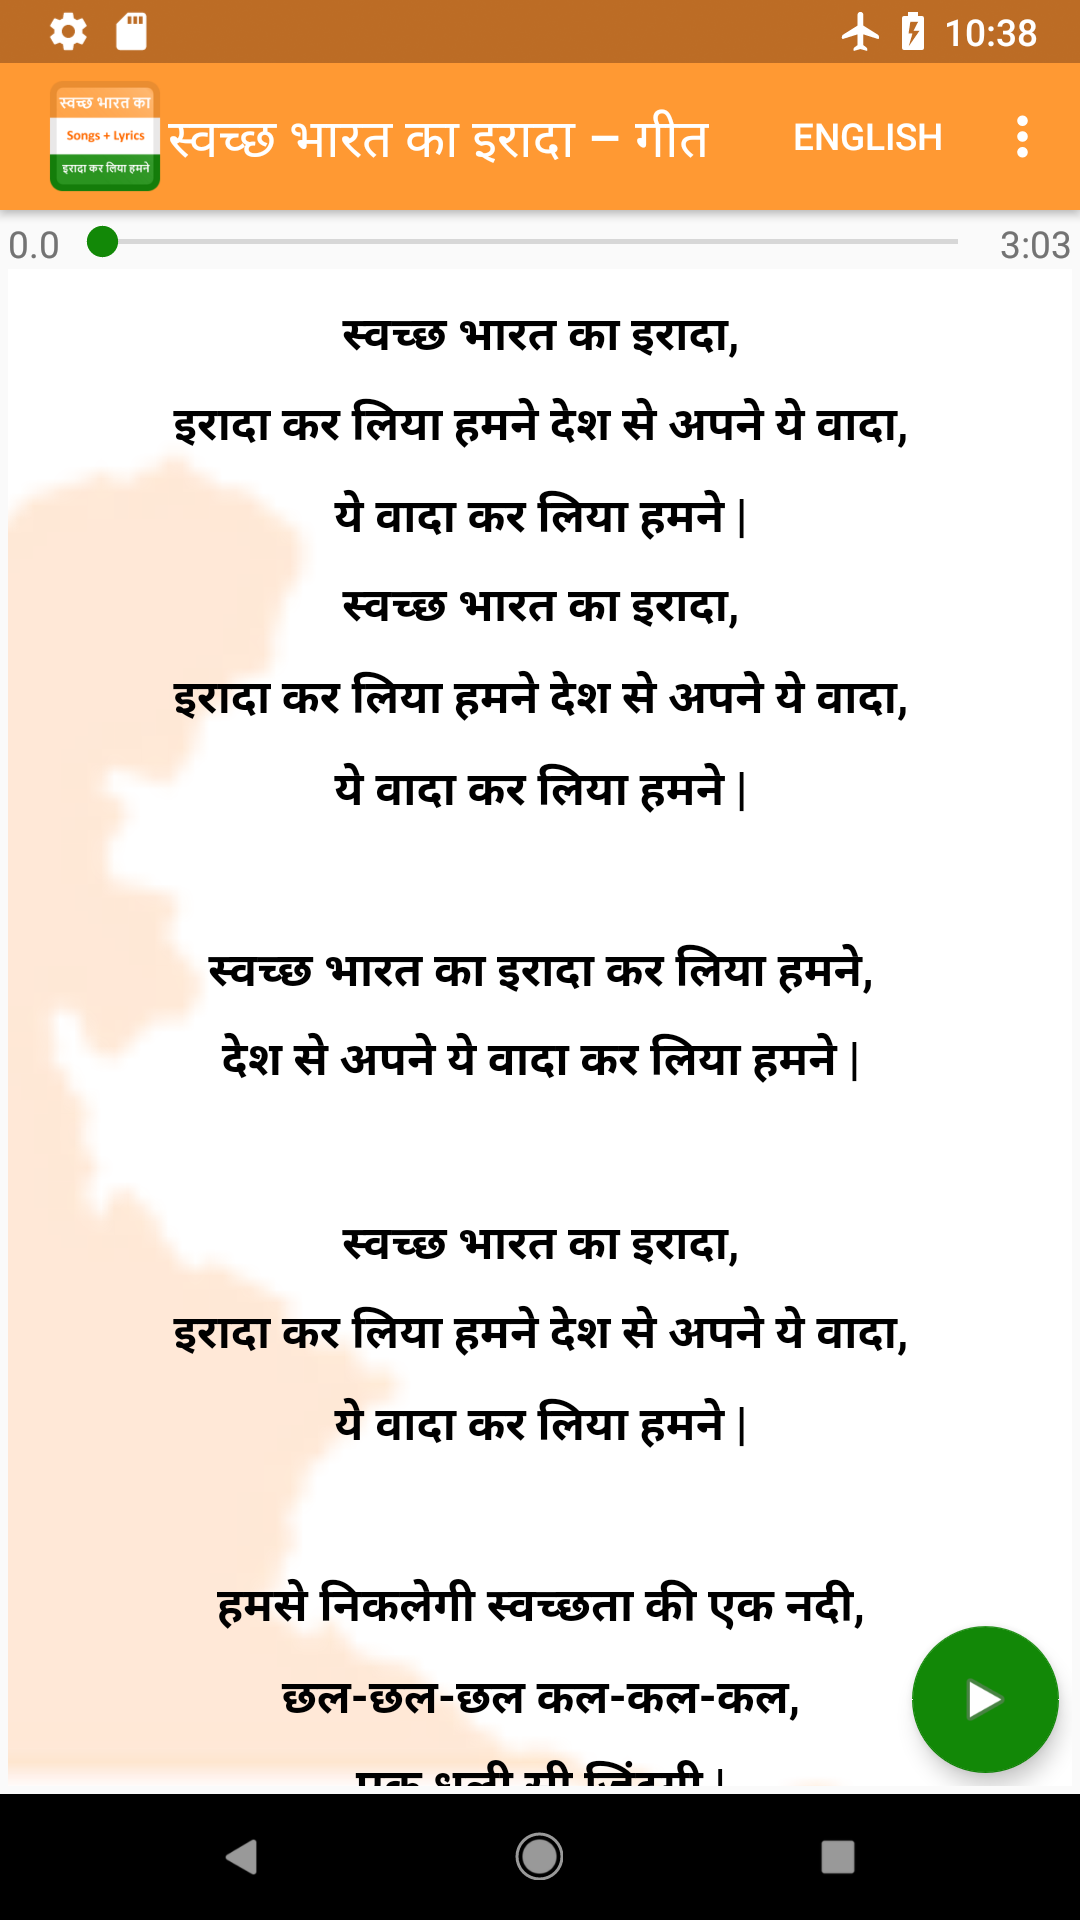 10:38
स्वच्छ भारत का
Songs + Lyrics
इरादा कर लिया हमने
स्वच्छ भारत का इरादा – गीत
ENGLISH
0.0
3:03
स्वच्छ भारत का इरादा,
इरादा कर लिया हमने देश से अपने ये वादा,
ये वादा कर लिया हमने |
स्वच्छ भारत का इरादा,
इरादा कर लिया हमने देश से अपने ये वादा,
ये वादा कर लिया हमने |
स्वच्छ भारत का इरादा कर लिया हमने,
देश से अपने ये वादा कर लिया हमने |
स्वच्छ भारत का इरादा,
इरादा कर लिया हमने देश से अपने ये वादा,
ये वादा कर लिया हमने |
हमसे निकलेगी स्वच्छता की एक नदी,
छल-छल-छल कल-कल-कल,